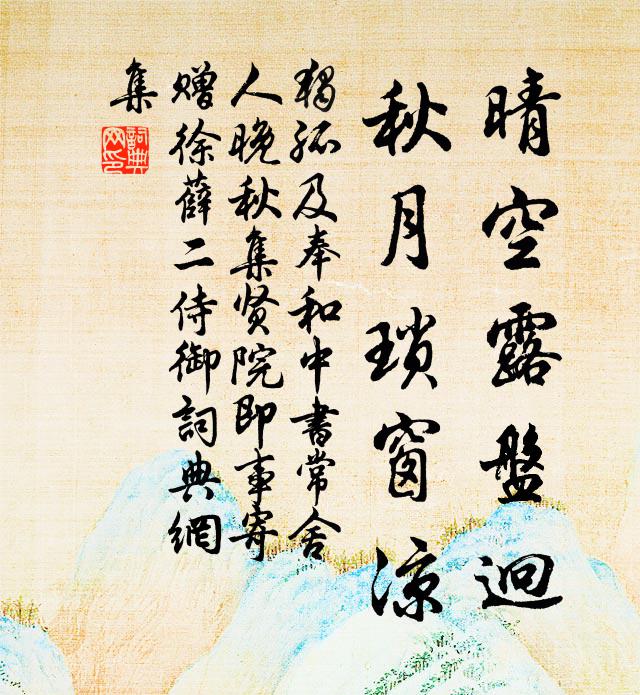 晴空露盤迥
秋月瑣窗涼
獨孤及奉和中書常舍
人晚秋集贤院即事寄
贈徐薛二侍御詞典網
集
詞典网印